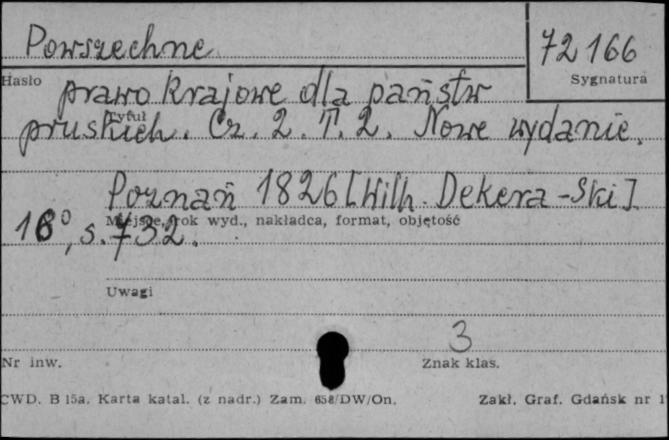 Powszechne
72166
Hasło
Sygnatura
prawo krajowe dla państw
Tytuł
pruskich. Cz. 2. T. 2. Nowe wydanie.
Poznań 1826 [Wilh. Dekera-Ski]
Miejsce, rok wyd., nakładca, format, objętość
16°, s. 732.
Uwagi
3
Nr inw.
Znak klas.
CWD. B 15a. Karta katal. (z nadr.) Zam. 658/DW/On.
Zakł. Graf. Gdańsk nr 1